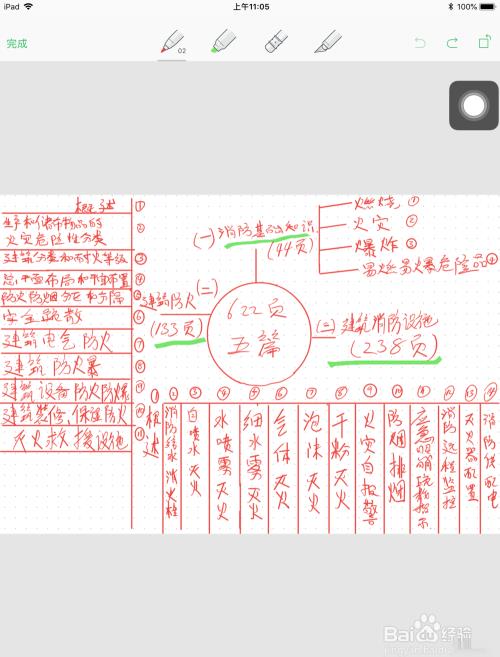 iPad
上午11:05
100%
完成
02
概述 ①
生产和储存物品的 ②
火灾危险性分类
建筑分类和耐火等级 ③
总平面布局和平面布置 ④
防火防烟分区和分隔 ⑤
安全疏散 ⑥
建筑电气防火 ⑦
建筑防火暴 ⑧
建筑设备防火防爆 ⑨
建筑装修、保温防火 ⑩
灭火救援设施 ⑪
(一)消防基础知识
(44页)
燃烧 ①
火灾 ②
爆炸 ③
易燃易爆危险品 ④
(二)
建筑防火
(133页)
622页
五篇
(三)建筑消防设施
(238页)
① 概述
② 消防给水消火栓
③ 自喷水灭火
④ 水喷雾灭火
⑤ 细水雾灭火
⑥ 气体灭火
⑦ 泡沫灭火
⑧ 干粉灭火
⑨ 火灾自报警
⑩ 防烟排烟
⑪
⑫ 消防远程监控
⑬ 灭火器配置
⑭ 消防供配电
Baidu 经验
jingyan.baidu.com